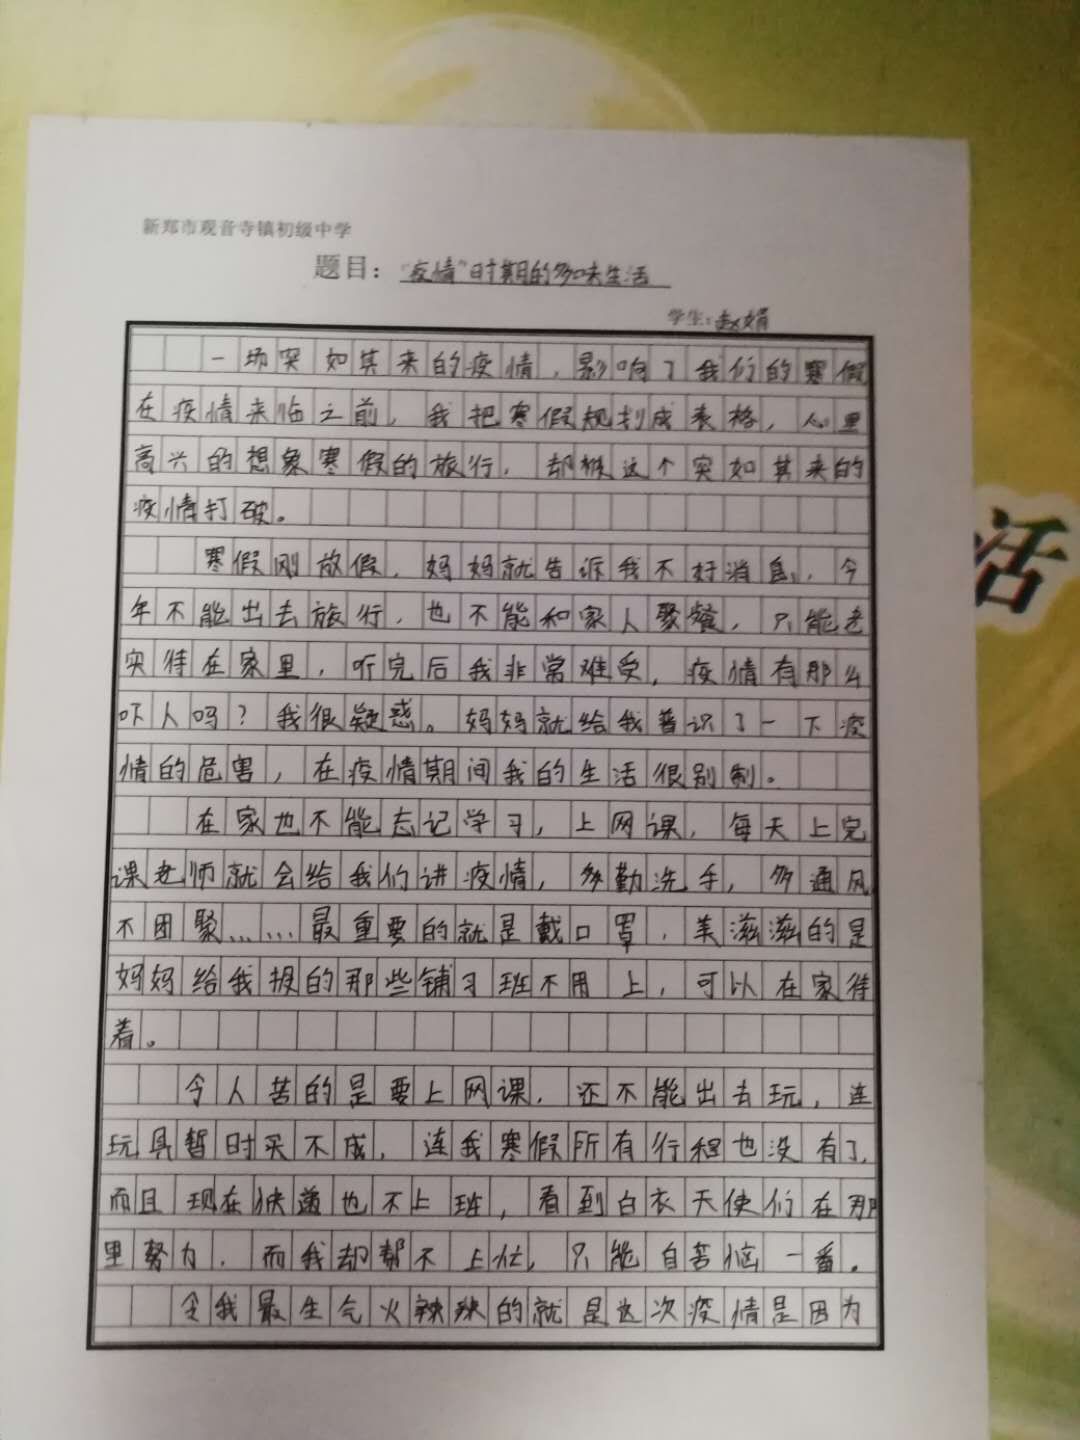 新郑市观音寺镇初级中学
题目："疫情"时期的多味生活
学生：赵娟
一场突如其来的疫情，影响了我们的寒假
在疫情来临之前，我把寒假规划成表格，心里
高兴的想象寒假的旅行，却被这个突如其来的
疫情打破。
寒假刚放假，妈妈就告诉我不好消息，今
年不能出去旅行，也不能和家人聚餐，只能老
实待在家里，听完后我非常难受，疫情有那么
吓人吗？我很疑惑。妈妈就给我普识了一下疫
情的危害，在疫情期间我的生活很别制。
在家也不能忘记学习，上网课，每天上完
课老师就会给我们讲疫情，多勤洗手，多通风
不团聚……最重要的就是戴口罩，美滋滋的是
妈妈给我报的那些铺习班不用上，可以在家待
着。
令人苦的是要上网课，还不能出去玩，连
玩具暂时买不成，连我寒假所有行程也没有了，
而且现在快递也不上班，看到白衣天使们在那
里努力，而我却帮不上忙，只能自苦恼一番。
令我最生气火辣辣的就是这次疫情是因为
活